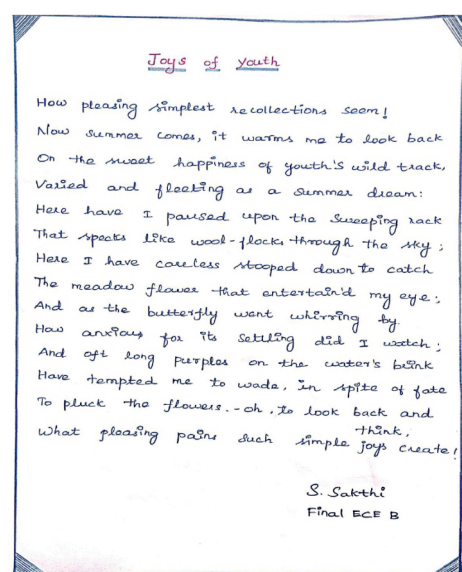 Joys of youth
How pleasing simplest recollections seem!
Now summer comes, it warms me to look back
On the sweet happiness of youth's wild track,
Varied and fleeting as a summer dream:
Here have I paused upon the sweeping rack
That specks like wool-flocks through the sky;
Here I have careless stooped down to catch
The meadow flower that entertain'd my eye;
And as the butterfly went whirring by
How anxious for its settling did I watch;
And oft long purples on the water's brink
Have tempted me to wade, in spite of fate
To pluck the flowers.-oh, to look back and
think,
What pleasing pains such simple joys create!
S. Sakthi
Final ECE B